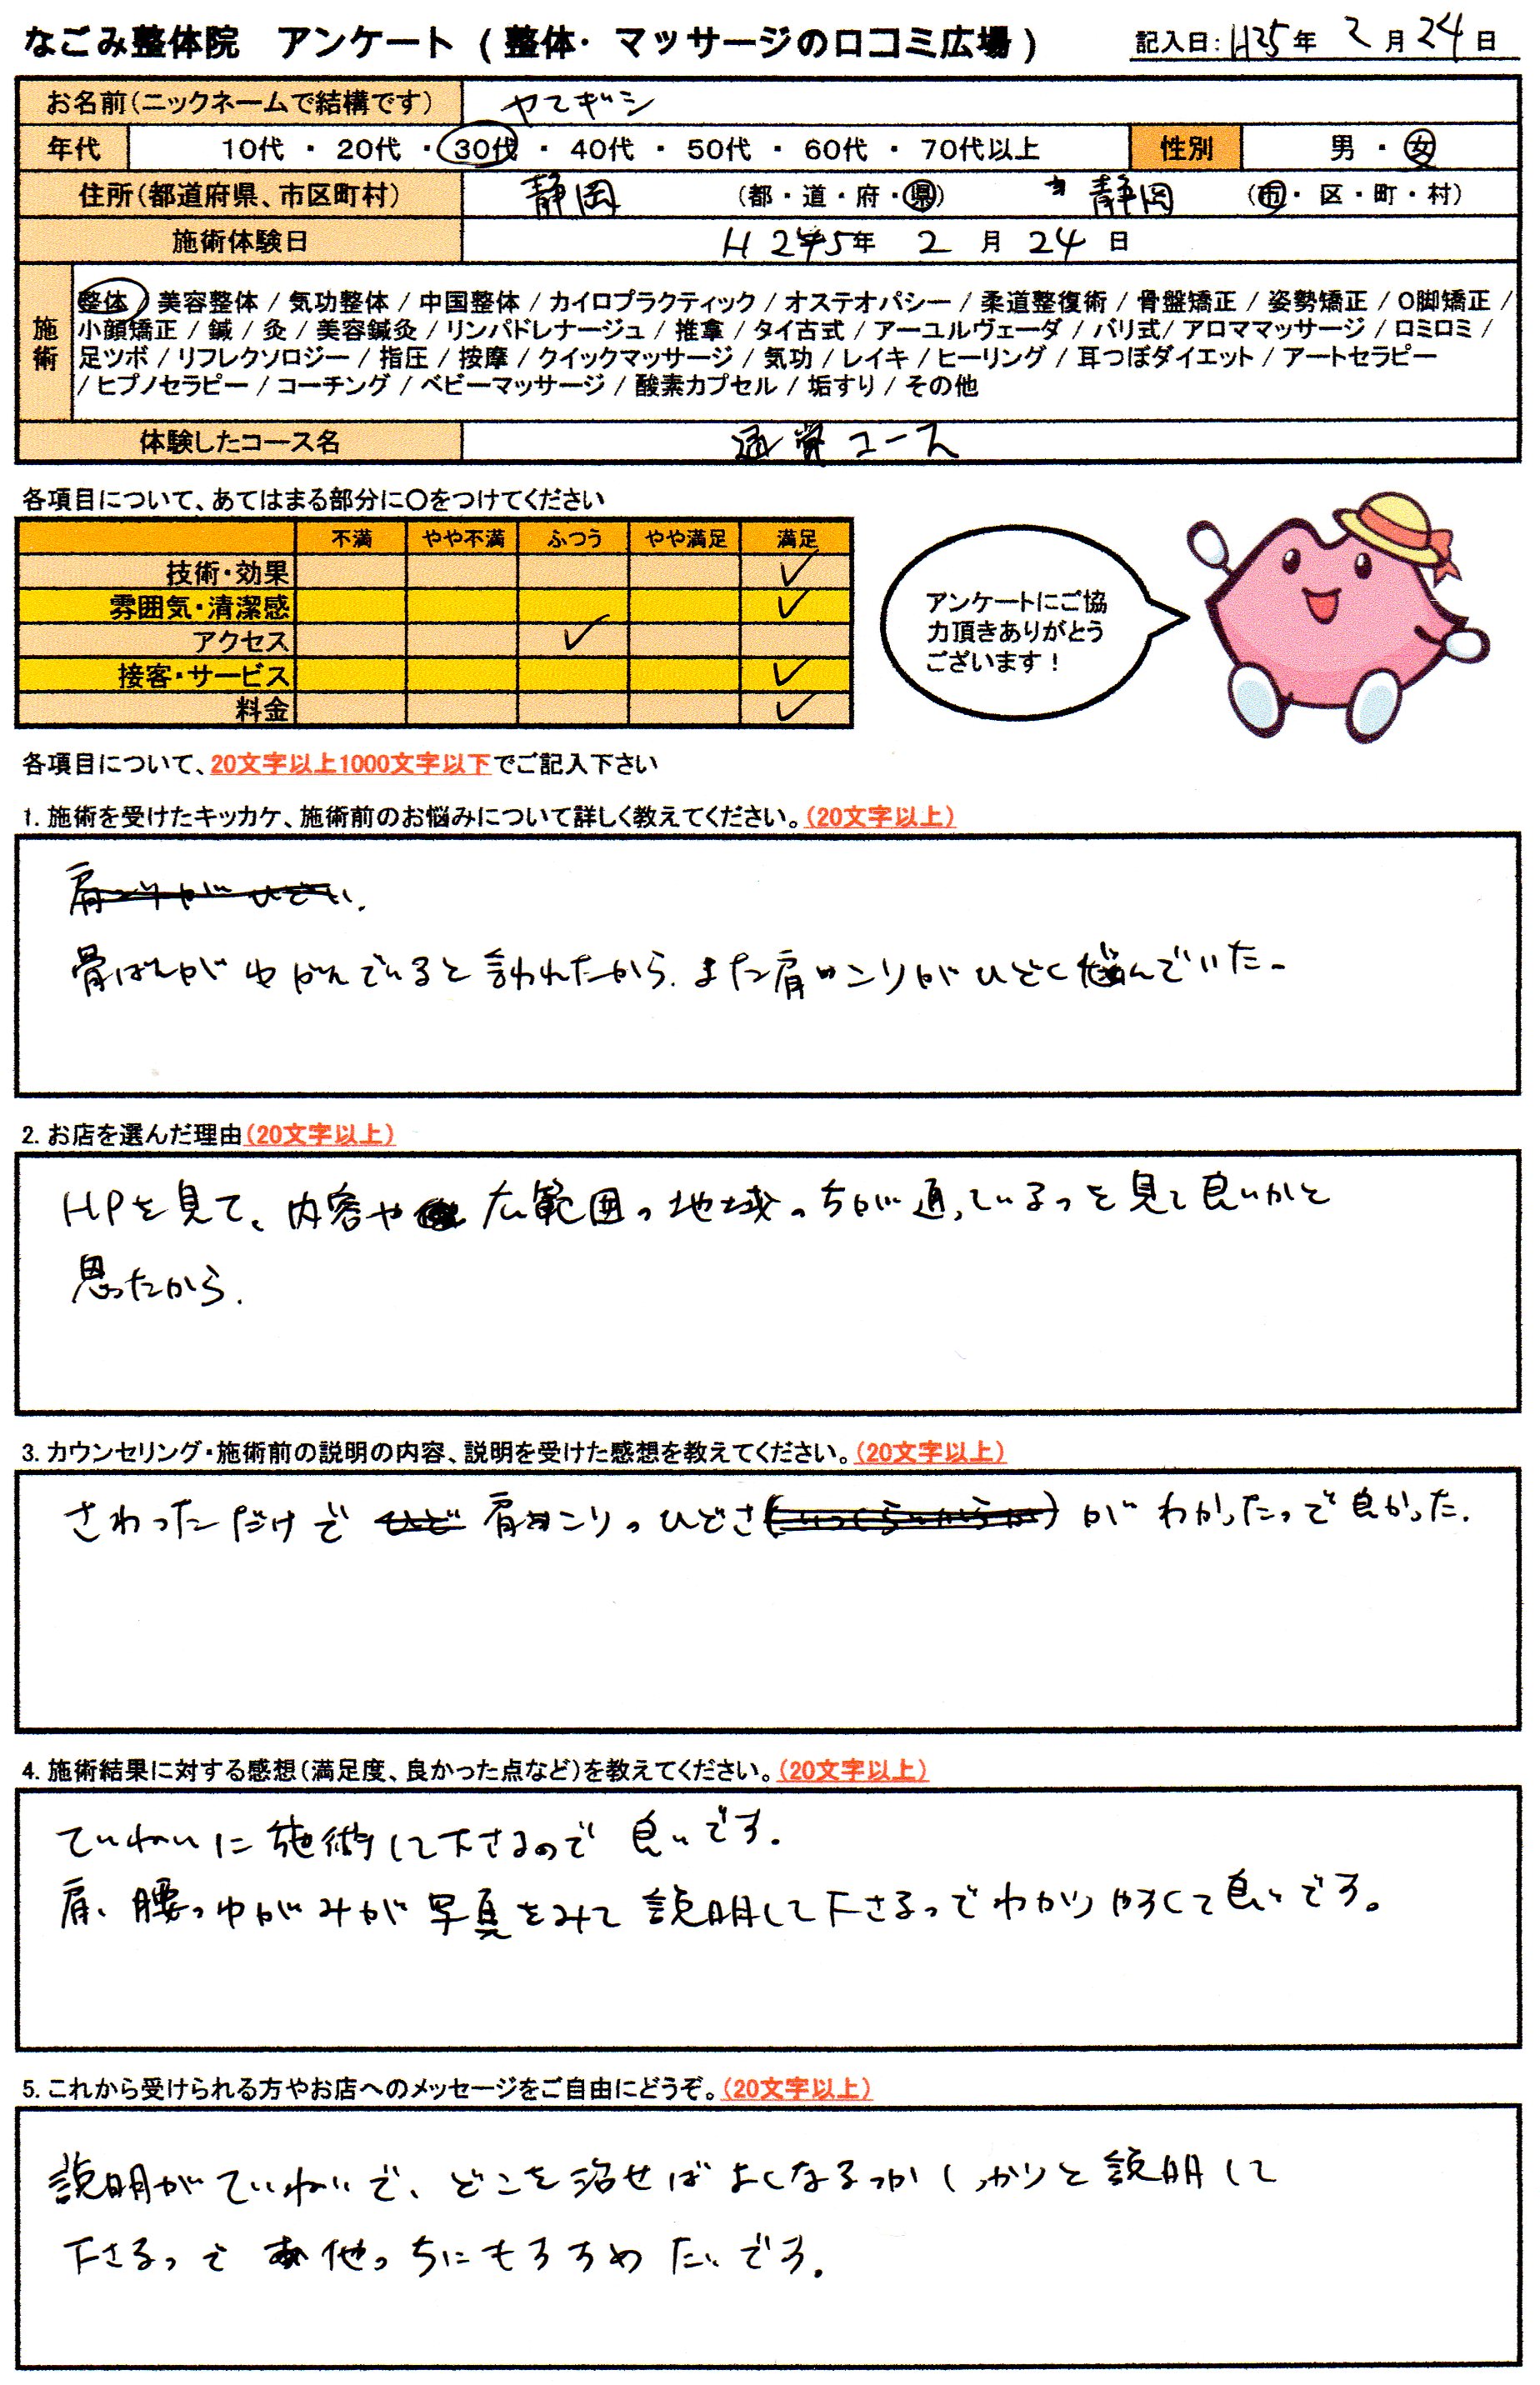 なごみ整体院 アンケート (整体・マッサージの口コミ広場) 記入日: H25年 2月24日
お名前(ニックネームで結構です) ヤマギシ
年代 10代 ・ 20代 ・ 30代 ・ 40代 ・ 50代 ・ 60代 ・ 70代以上 性別 男 ・ 女
住所(都道府県、市区町村) 静岡 (都・道・府・県) 静岡 (市・区・町・村)
施術体験日 H 25年 2月 24日
施術
整体 / 美容整体 / 気功整体 / 中国整体 / カイロプラクティック / オステオパシー / 柔道整復術 / 骨盤矯正 / 姿勢矯正 / O脚矯正 /
小顔矯正 / 鍼 / 灸 / 美容鍼灸 / リンパドレナージュ / 推拿 / タイ古式 / アーユルヴェーダ / バリ式 / アロママッサージ / ロミロミ /
足ツボ / リフレクソロジー / 指圧 / 按摩 / クイックマッサージ / 気功 / レイキ / ヒーリング / 耳つぼダイエット / アートセラピー
/ ヒプノセラピー / コーチング / ベビーマッサージ / 酸素カプセル / 垢すり / その他
体験したコース名 通常コース
各項目について、あてはまる部分に○をつけてください
不満 やや不満 ふつう やや満足 満足
技術・効果 ✓
雰囲気・清潔感 ✓
アクセス ✓
接客・サービス ✓
料金 ✓
アンケートにご協
力頂きありがとう
ございます!
各項目について、20文字以上1000文字以下でご記入下さい
1. 施術を受けたキッカケ、施術前のお悩みについて詳しく教えてください。(20文字以上)
肩こりがひどい.
骨ばんがゆがんでいると言われたから. また肩のコリがひどく悩んでいた.
2. お店を選んだ理由(20文字以上)
HPを見て、内容や広範囲の地域の方が通っているのを見て良いかと
思ったから.
3. カウンセリング・施術前の説明の内容、説明を受けた感想を教えてください。(20文字以上)
さわっただけで ひど 肩のコリのひどさがわかったので良かった.
4. 施術結果に対する感想(満足度、良かった点など)を教えてください。(20文字以上)
ていねいに施術して下さるので良いです.
肩、腰のゆがみが写真をみて説明して下さるのでわかりやすくて良いです。
5. これから受けられる方やお店へのメッセージをご自由にどうぞ。(20文字以上)
説明がていねいで、どこを治せばよくなるのかしっかりと説明して
下さるので 他の方にもすすめたいです.